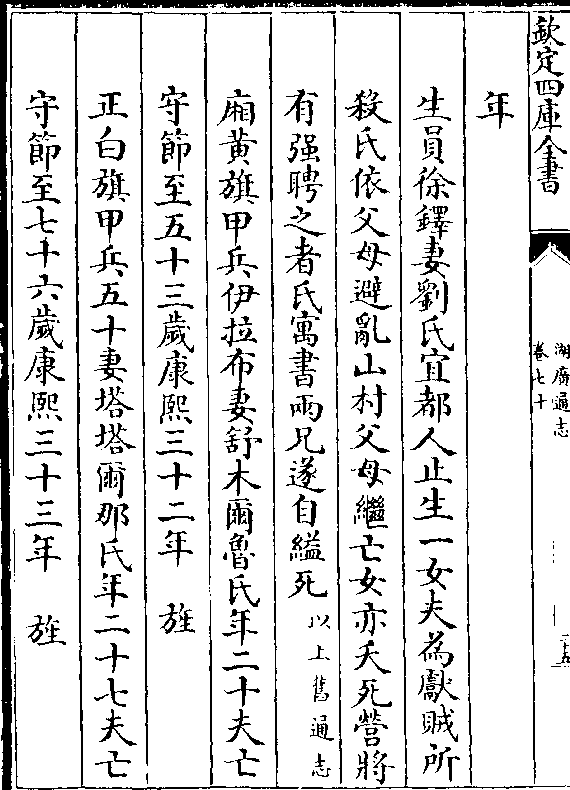 欽定四庫全書
湖廣通志
卷七十
二十五
年
生員徐鐸妻劉氏宜都人止生一女夫為獻賊所
殺氏依父母避亂山村父母繼亡女亦夭死營將
有强聘之者氏寓書兩兄遂自縊死以上舊通志
廂黄旗甲兵伊拉布妻舒木爾魯氏年二十夫亡
守節至五十三歲康熙三十二年 旌
正白旗甲兵五十妻塔塔爾那氏年二十七夫亡
守節至七十六歲康熙三十三年 旌